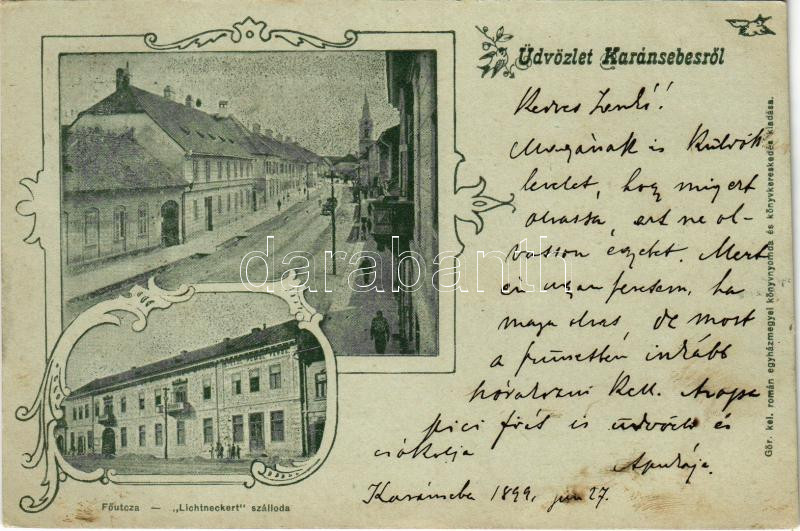 Üdvözlet Karánsebesről
Kedves Lenkó!
Magának is küldök
levelet, hogy mig ezt
olvassa, azt ne ol-
vasson egyebet. Mert
én ugyan szeretem, ha
maga olvas, de most
a szünetben inkább
szórakozni kell.
pici fiát is üdvözli és
csókolja
Apukája
Karánsebes 1899. jun 27.
Főutcza — „Lichtneckert" szálloda
Gör. kel. román egyházmegyei könyvnyomda és könyvkereskedés kiadása.
darabanth